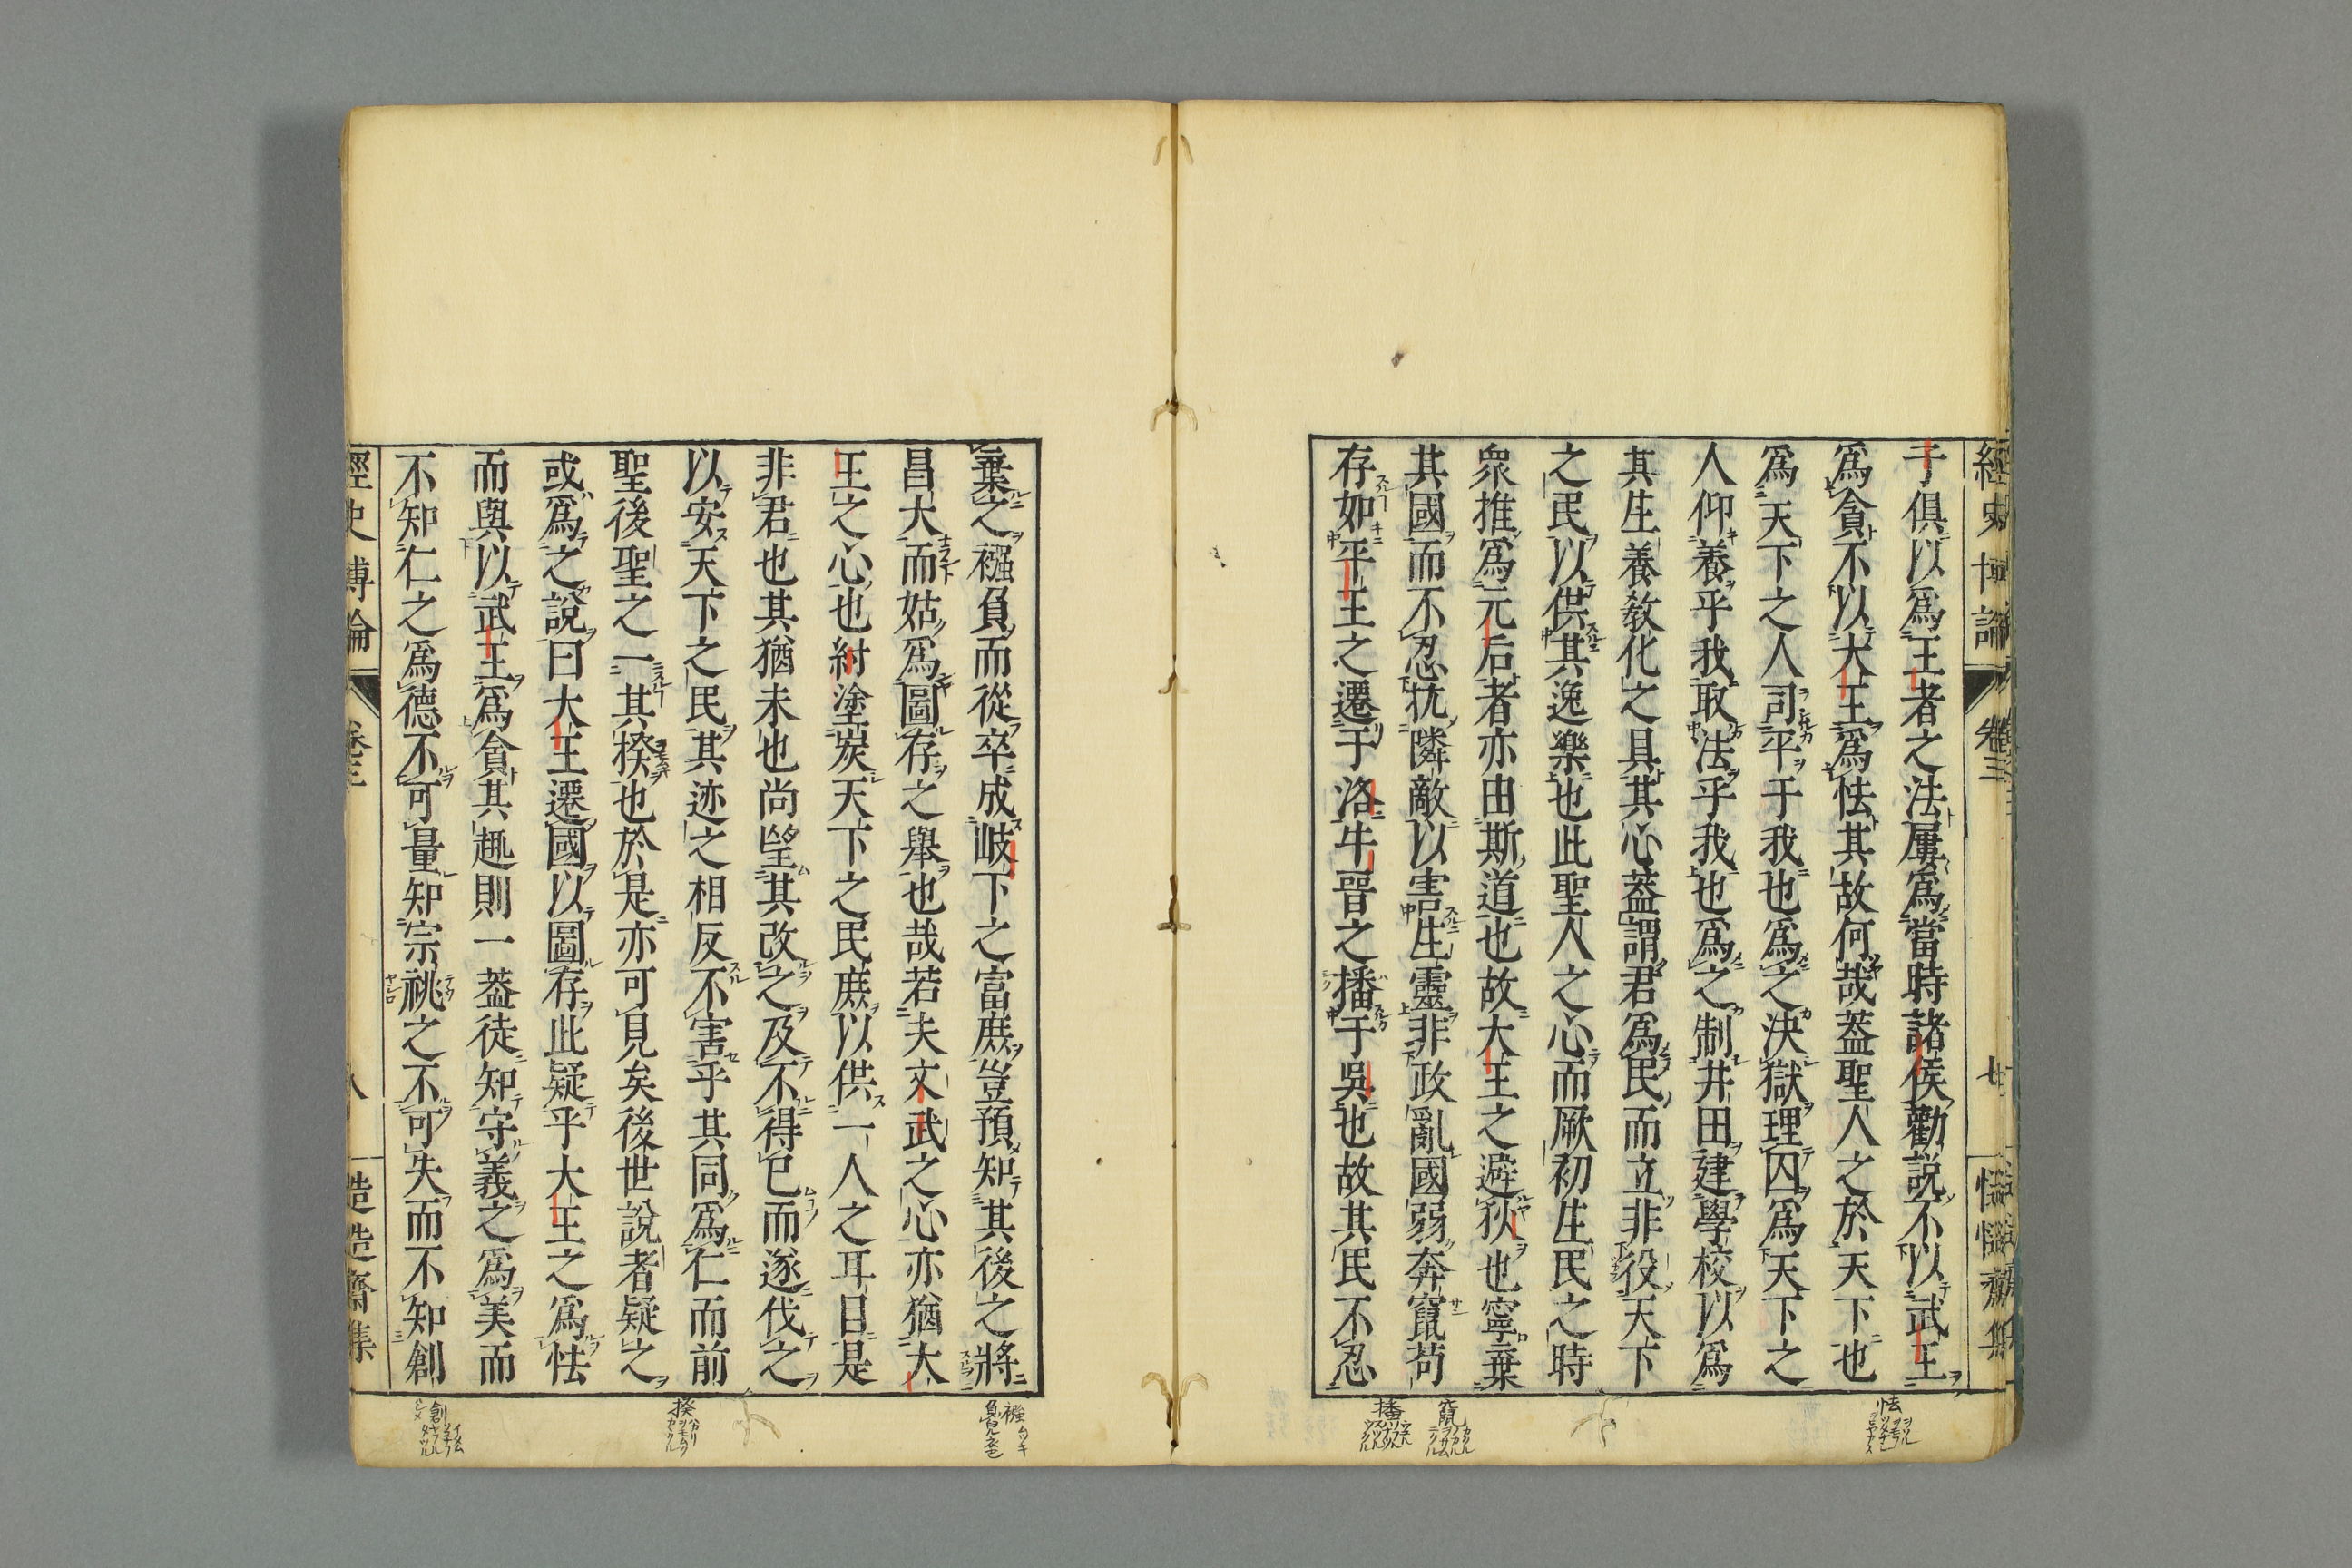 經史博論 卷三 慥慥齋集
于俱以爲王者之法屢爲當時諸侯勸説不以武王
爲貪不以大王爲怯其故何哉葢聖人之於天下也
爲天下之人司平于我也爲之決獄理囚爲天下之
人仰養乎我取法乎我也爲之制井田建學校以爲
其生養教化之具其心葢謂君爲民而立非役天下
之民以供其逸樂也此聖人之心而厥初生民之時
衆推爲元后者亦由斯道也故大王之避狄也寧棄
其國而不忍抗隣敵以害生靈非政亂國弱奔竄苟
存如平王之遷于洛牛晉之播于吳也故其民不忍
棄之襁負而從卒成岐下之富庶豈預知其後之將
昌大而姑爲圖存之舉也哉若夫文武之心亦猶大
王之心也紂塗炭天下之民庶以供一人之耳目是
非君也其猶未也尚望其改之及不得已而遂伐之
以安天下之民其迹之相反不害乎其同爲仁而前
聖後聖之一其揆也於是亦可見矣後世說者疑之
或爲之說曰大王遷國以圖存此疑乎大王之爲怯
而與以武王爲貪其趣則一葢徒知守義之爲美而
不知仁之爲德不可量知宗祧之不可失而不知創
經史博論 卷三 八 慥慥齋集